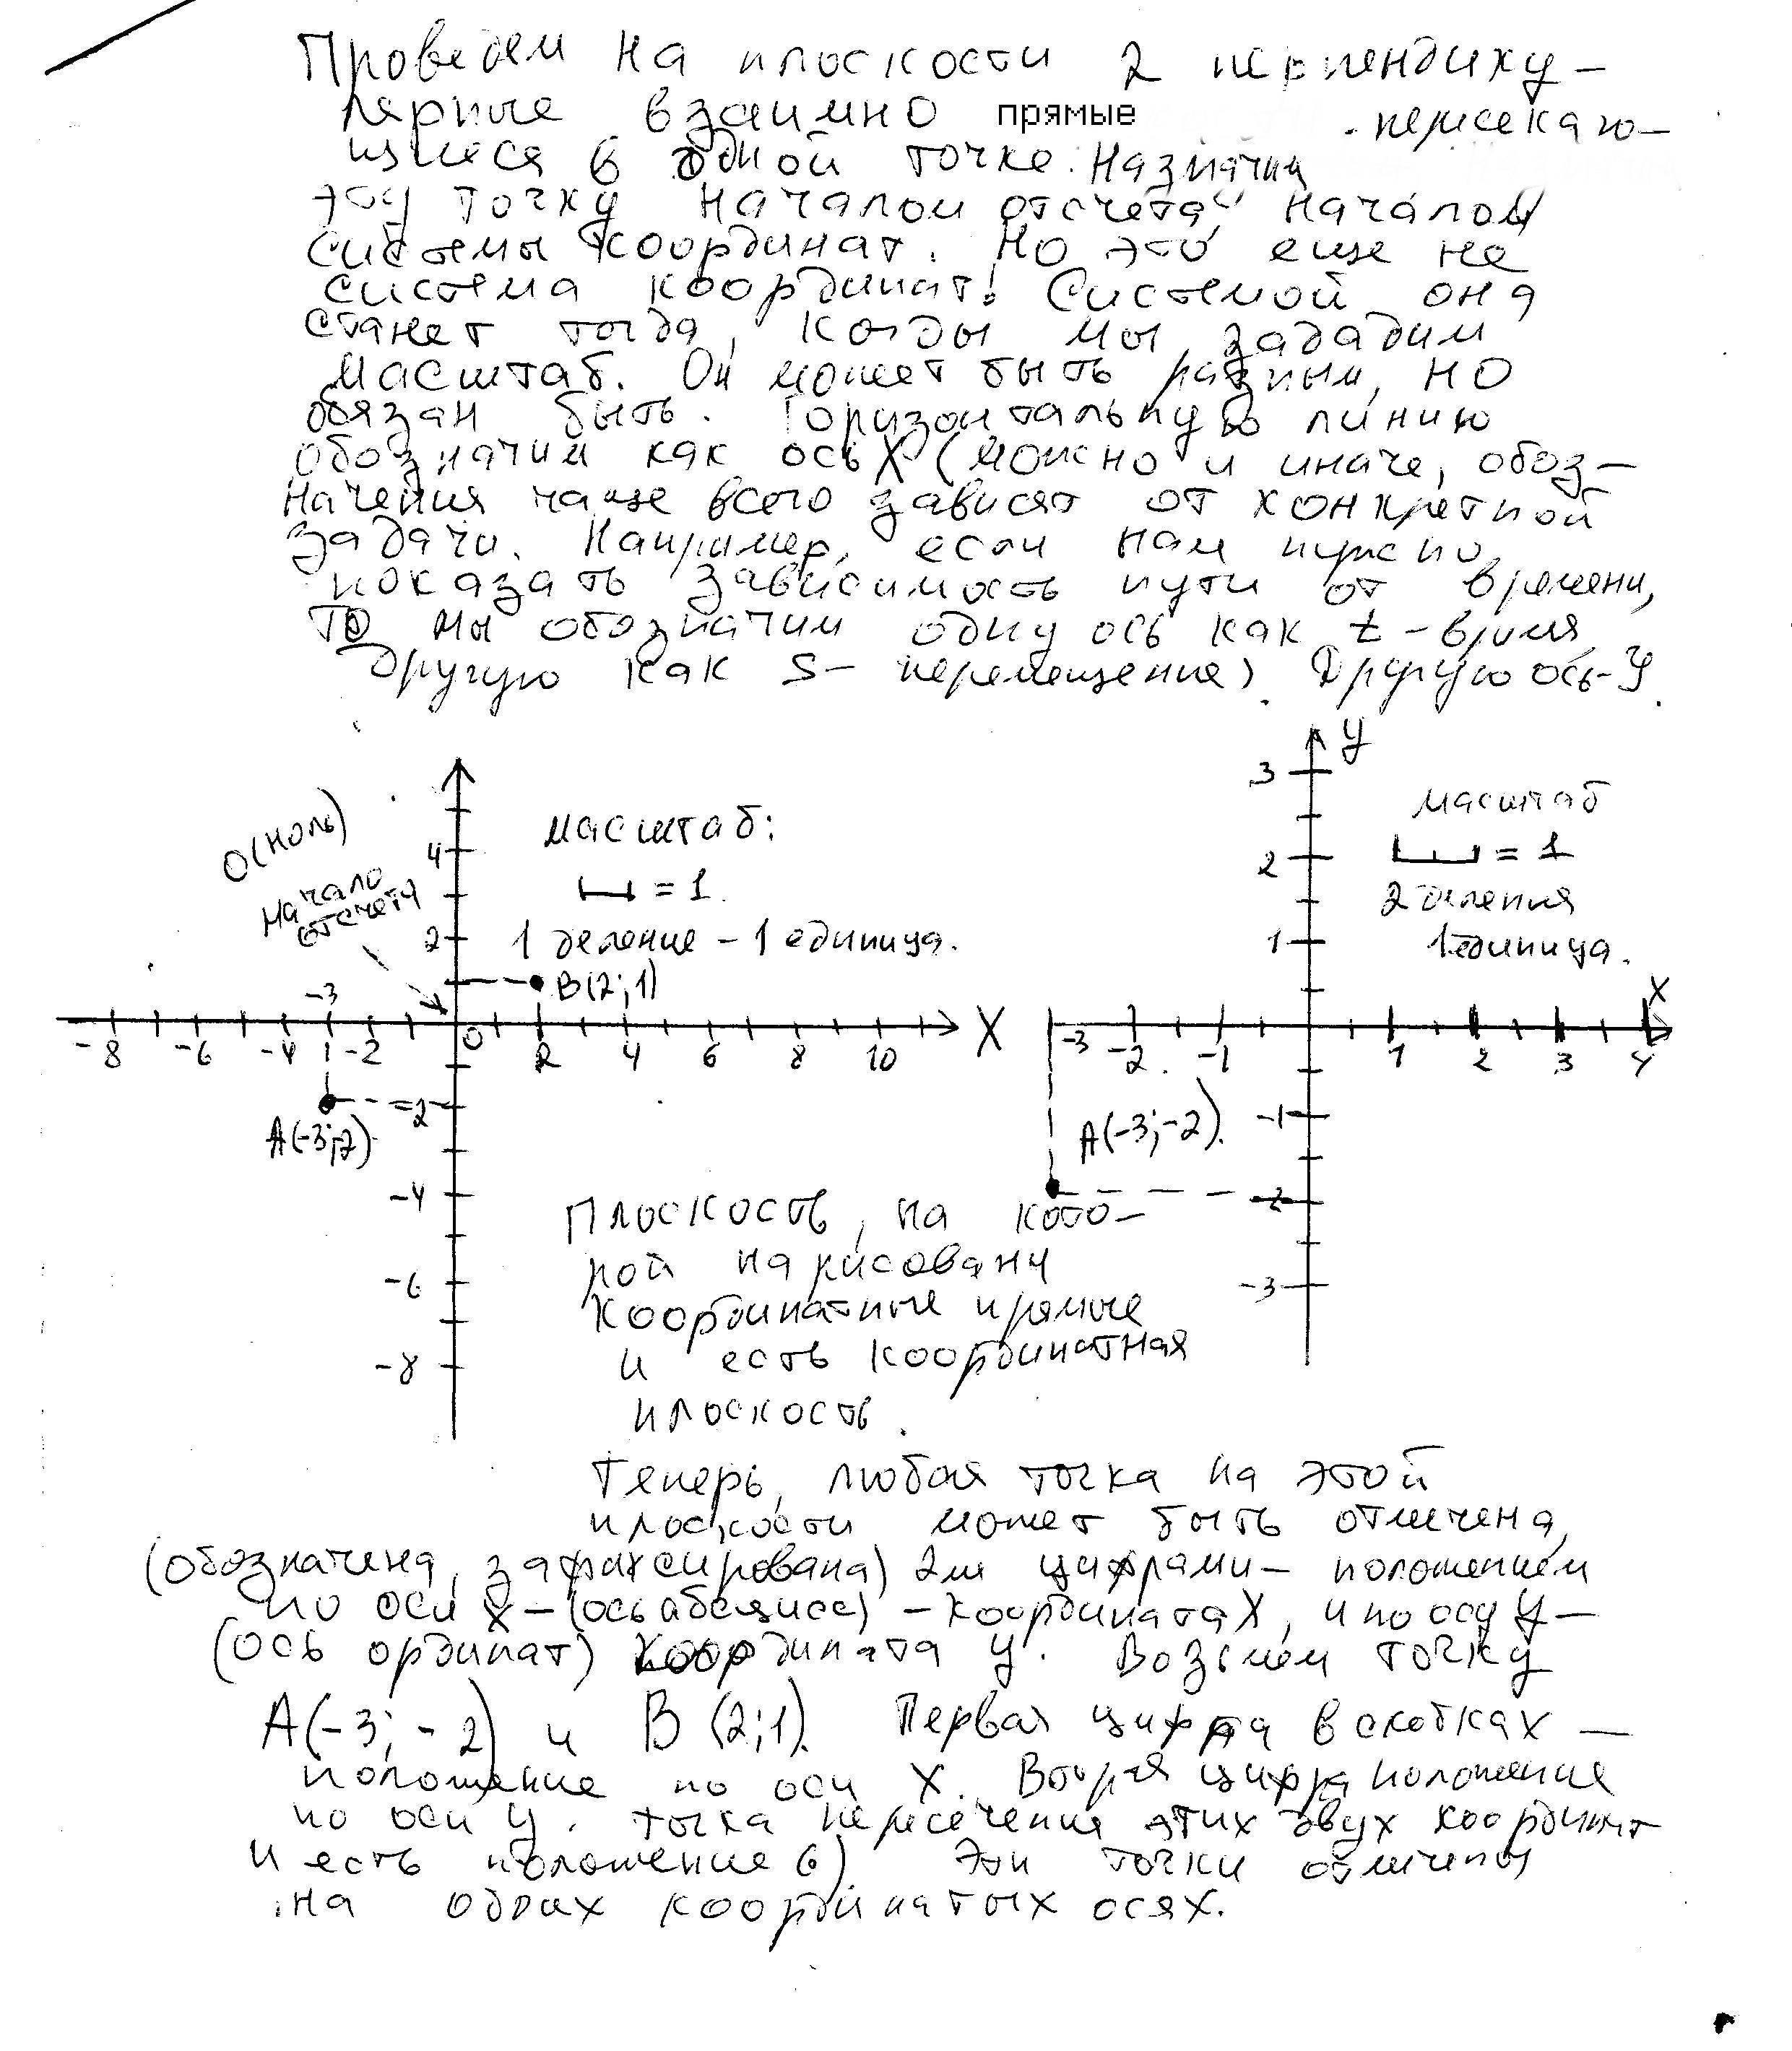 Проведем на плоскости 2 перпендику-
лярные взаимно прямые пересекаю-
щиеся в одной точке. Назначим
эту точку началом отсчета, началом
системы координат. Но это еще не
система координат! Системой она
станет тогда, когды мы зададим
масштаб. Он может быть разным, но
обязан быть. Горизонтальную линию
обозначим как ось X (можно и иначе, обоз-
начения чаще всего зависят от конкретной
задачи. Например, если нам нужно
показать зависимость пути от времени,
то мы обозначим одну ось как t - время,
другую как S - перемещение). Другую ось - У.
О(ноль)
Начало
отсчета
масштаб:
= 1.
1 деление - 1 единица.
B(2; 1)
4
2
-3
-8 -6 -4 -2 0 2 4 6 8 10 X
-2
A(-3;-2)
-4
-6
-8
У
3
2
1
масштаб
= 1
2 деления
1 единица.
X
-3 -2 -1 1 2 3 4
-1
A(-3; -2).
-2
-3
Плоскость, на кото-
рой нарисованы
координатные прямые
и есть координатная
плоскость.
Теперь, любая точка на этой
плоскости может быть отмечена,
(обозначена, зафиксирована) 2мя цифрами - положением
по оси X - (ось абсцисс) - координата X, и по осу У -
(ось ординат) координата У. Возьмем точку
A(-3; -2) и B (2; 1). Первая цифра в скобках -
положение по оси X. Вторая цифра положение
по оси У. Точка пересечения этих двух координат
и есть положение Эти точки отмечены
на обоих координатых осях.